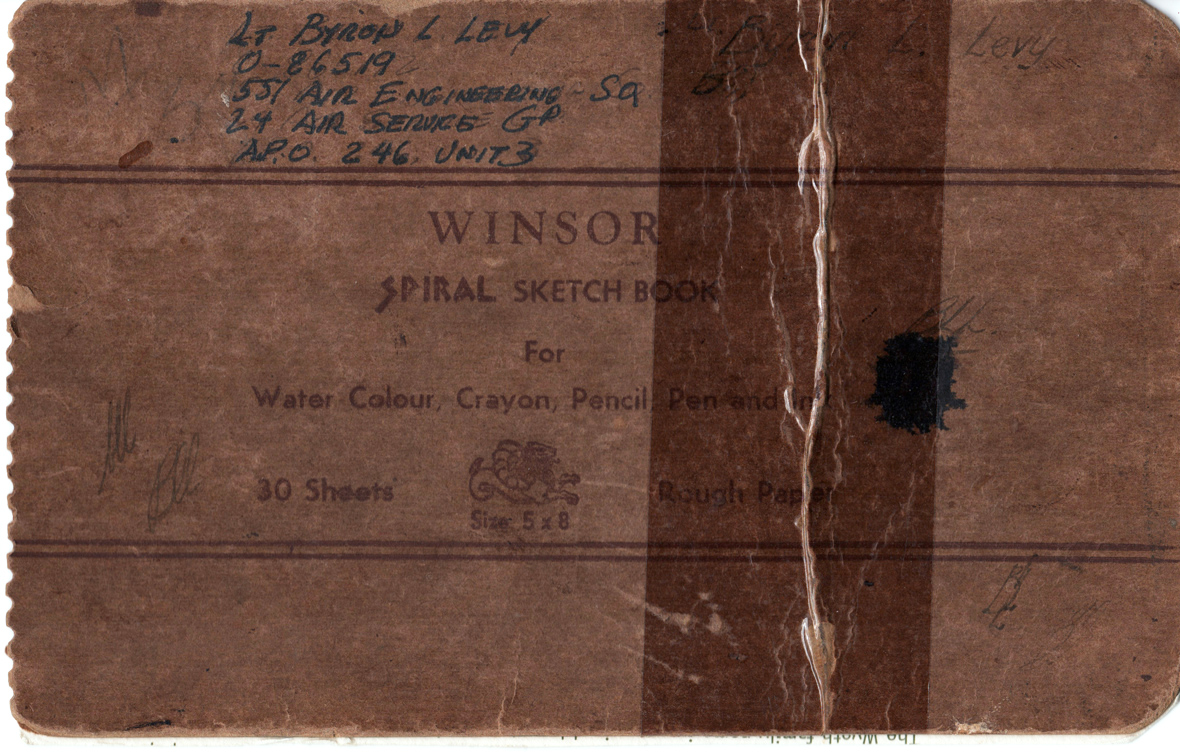 Lt Byron L Levy
O-86519
551 Air Engineering Sq
24 Air Service Gp
A.P.O. 246 Unit 3
Byron L. Levy
WINSOR
SPIRAL SKETCH BOOK
For
Water Colour, Crayon, Pencil, Pen and Ink
30 Sheets
Rough Paper
Size: 5 x 8
The Wyeth family